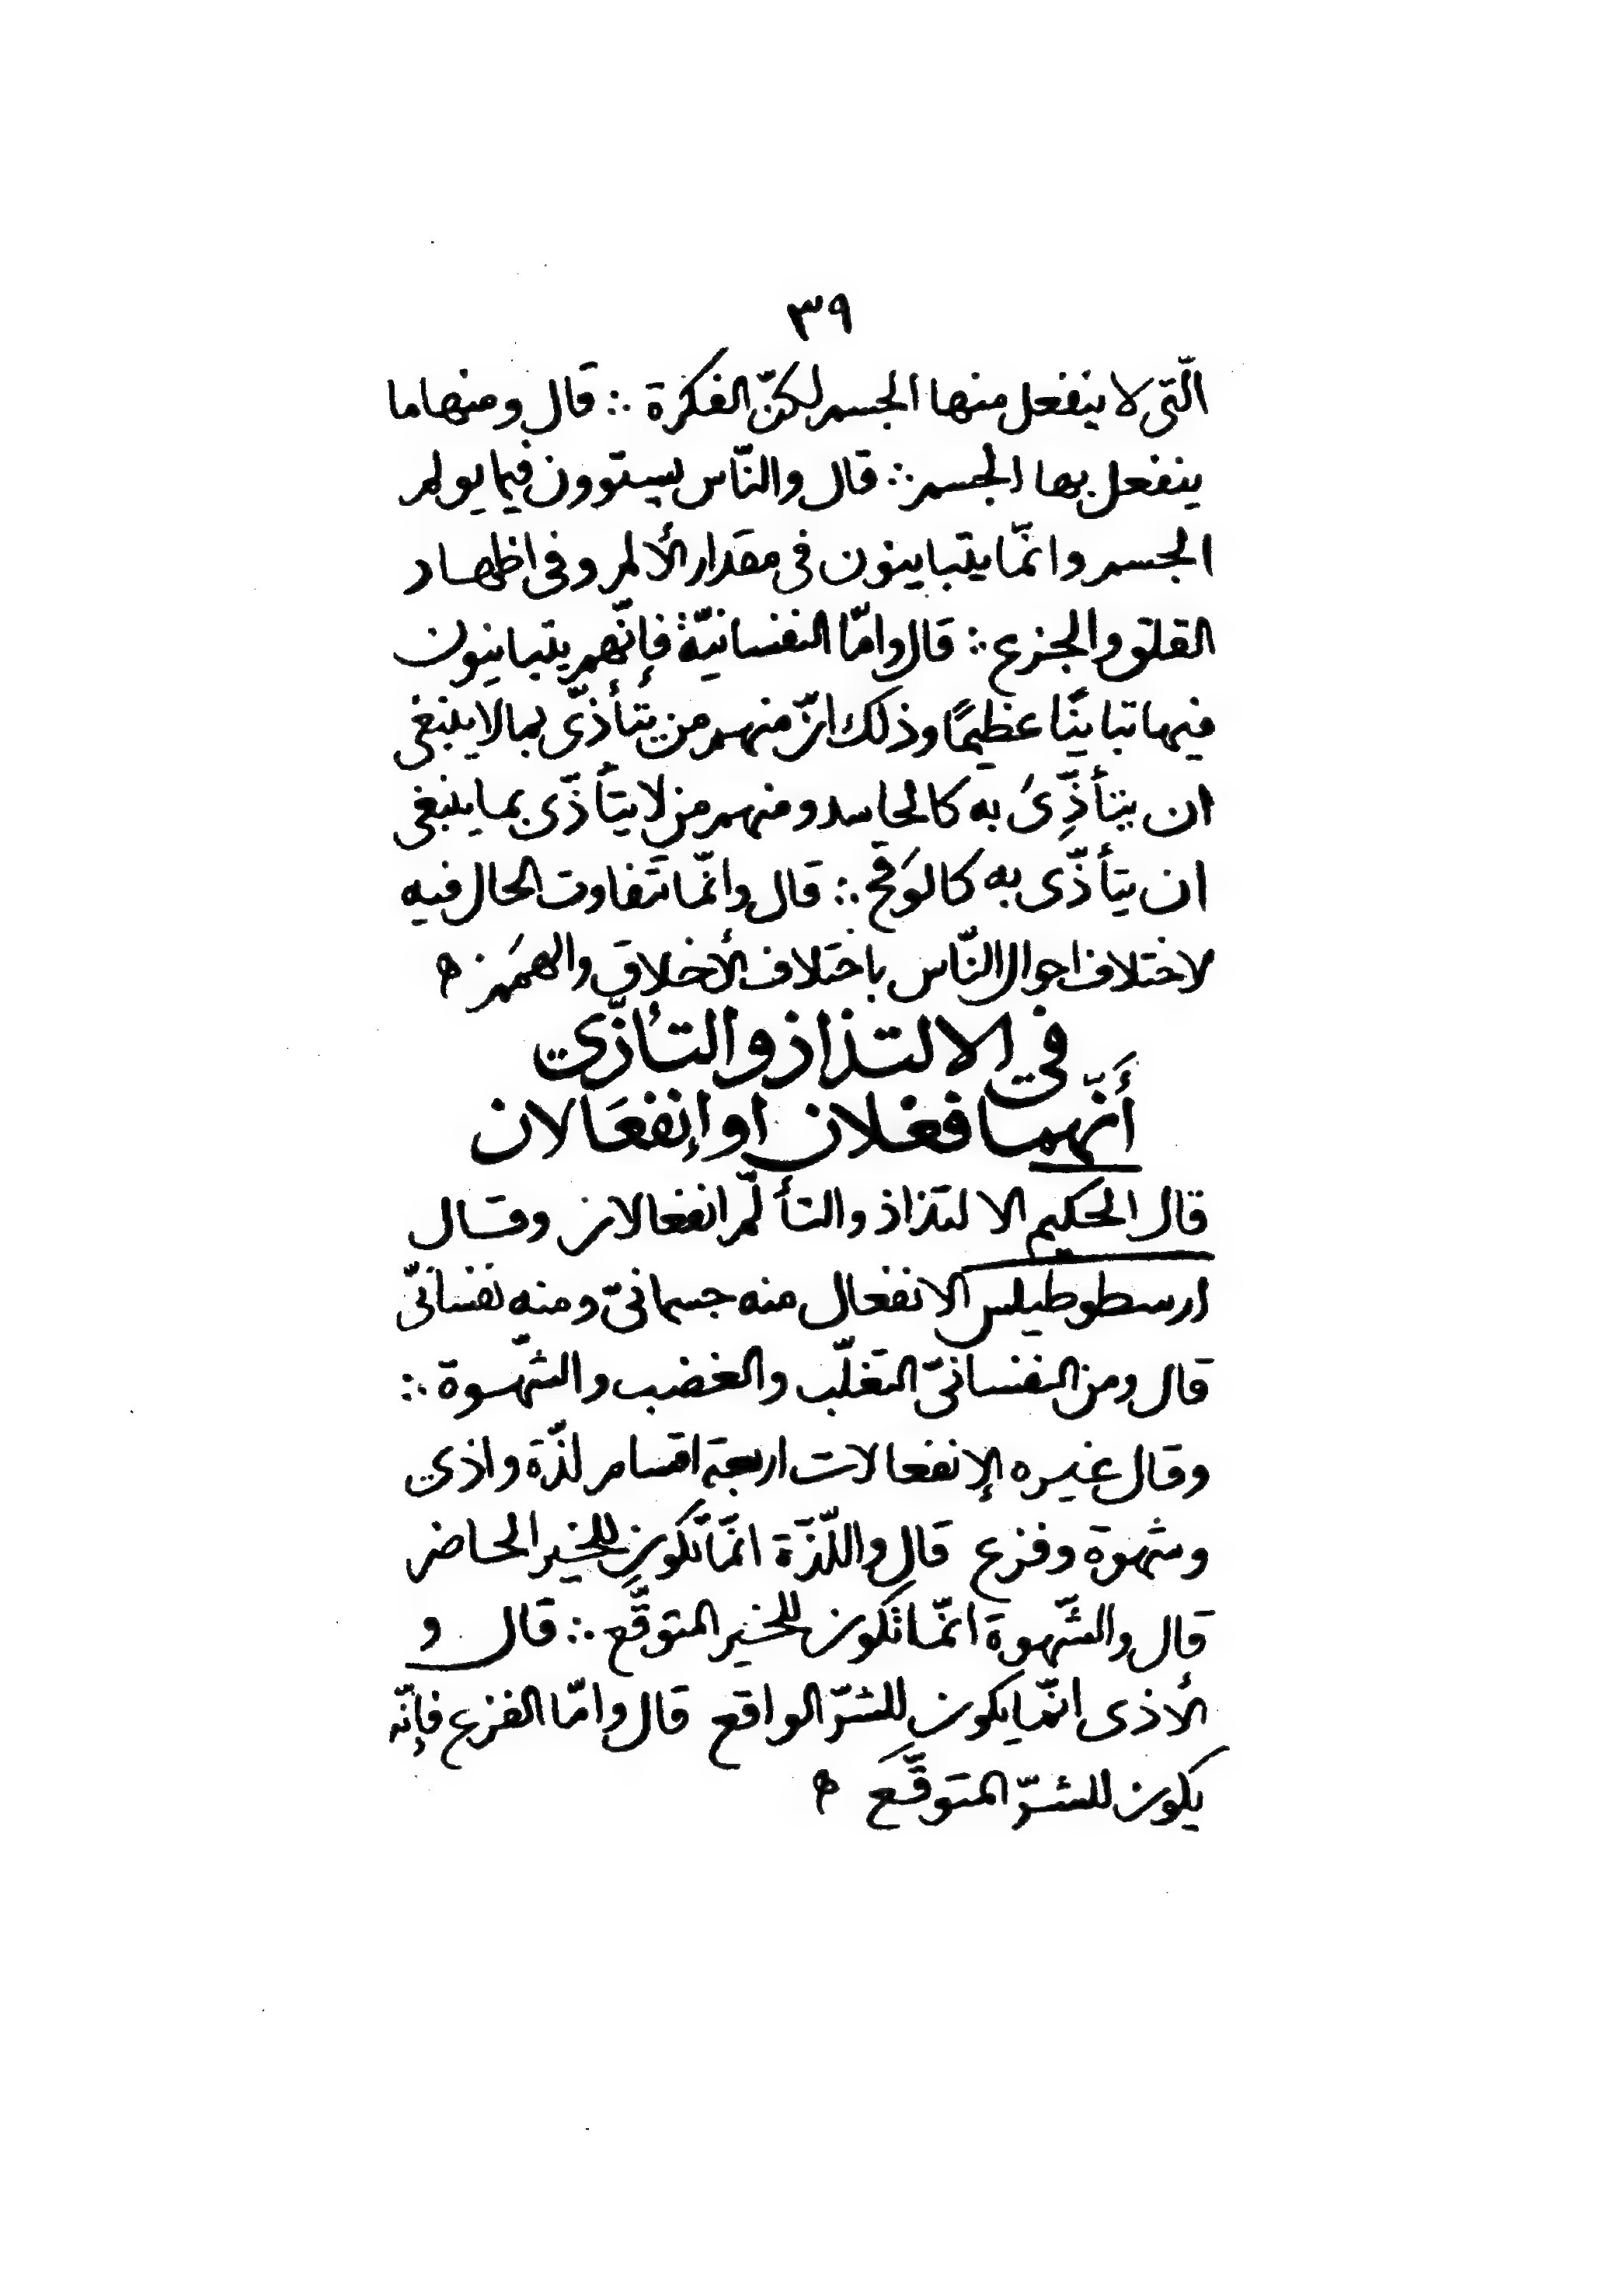 ٣٩
الّتى لا ينفعل منها الجسم لكنّ الفكرة ∴ قال ومنها ما
ينفعل بها الجسم ∴ قال والنّاس يستوون فيما يولم
الجسم وانّما يتباينون فى مقدار الألم وفى اظهار
القلق والجزع ∴ قال وامّا النفسانيّة فإنّهم يتباينون
فيها تباينًا عظيمًا وذلك انّ منهم من يتأذّى بما لا ينبغى
ان يتأذّى به كالحاسد ومنهم من لا يتأذّى بما ينبغى
ان يتأذّى به كالوَقح ∴ قال وانّما تَفاوت الحال فيه
لاختلاف احوال النّاس باختلاف الأخلاق والهمَم ࿐
في الالتذاذ والتأذّي
أَنّهما فعلان او إنفعَالان
قال الحكيم الالتذاذ والتألّم انفعالان وقال
ارسطوطيلس الانفعال منه جسمانىّ ومنه نفسانىّ
قال ومن النفسانىّ التغلّب والغضب والشّهوة ∴
وقال غيره الإنفعالات اربعة اقسام لذّة واذى
وشهوة وفزع قال واللّذّة انّما تكون للخير الحاضر
قال والشّهوة انّما تكون للخير المتوقَّع ∴ قال و
الأذى انّما يكون للشرّ الواقع قال وامّا الفزع فإنّه
يكون للشرّ المتوقَّع